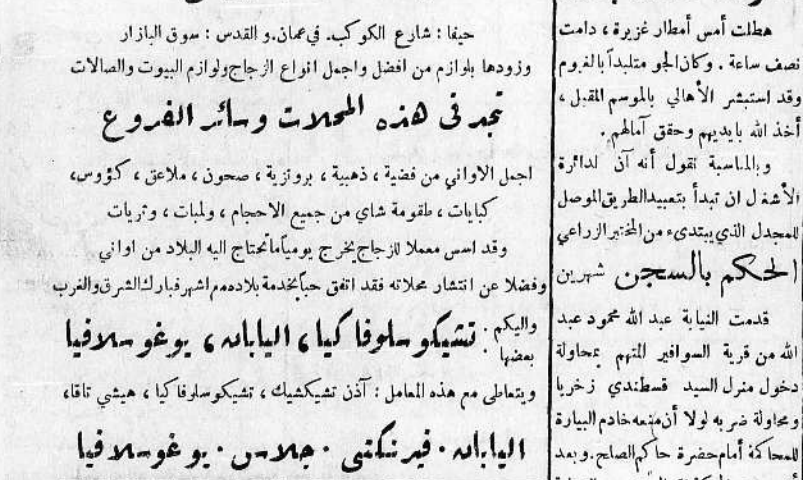 هطلت أمس أمطار غزيرة ، دامت
نصف ساعة . وكان الجو متلبداً بالغيوم
وقد استبشر الأهالي بالموسم المقبل ،
أخذ الله بايديهم وحقق آمالهم .
وبالمناسبة نقول أنه آن لدائرة
الأشغال ان تبدأ بتعبيد الطريق الموصل
للمجدل الذي يبتدىء من المختبر الزراعي
الحكم بالسجن شهرين
قدمت النيابة عبد الله محمود عبد
الله من قرية السوافير المتهم بمحاولة
دخول منزل السيد قسطندي زخريا
ومحاولة ضربه لولا أن منعه خادم البيارة
للمحاكمة أمام حضرة حاكم الصلح . وبعد
حيفا : شارع الكوكب . في عمان . و القدس : سوق البازار
وزودها بلوازم من افضل واجمل انواع الزجاج ولوازم البيوت والصالات
تجد في هذه المحلات وسائر الفروع
اجمل الاواني من فضية ، ذهبية ، برونزية ، صحون ، ملاعق ، كؤوس ،
كبايات ، طقومة شاي من جميع الاحجام ، ولمبات ، وتريات
وقد اسس معملا للزجاج يخرج يومياً ما تحتاج اليه البلاد من اواني
وفضلا عن انتشار محلاته فقد اتفق حباً بخدمة بلاده مع اشهر فبارك الشرق والغرب
واليكم بعضها : تشيكوسلوفاكيا ، اليابان ، يوغوسلافيا
ويتعاطى مع هذه المعامل : آذن تشيكشيك ، تشيكوسلوفاكيا ، هيشي تاقا ،
اليابان . فيرنكتي . جلاس . يوغوسلافيا